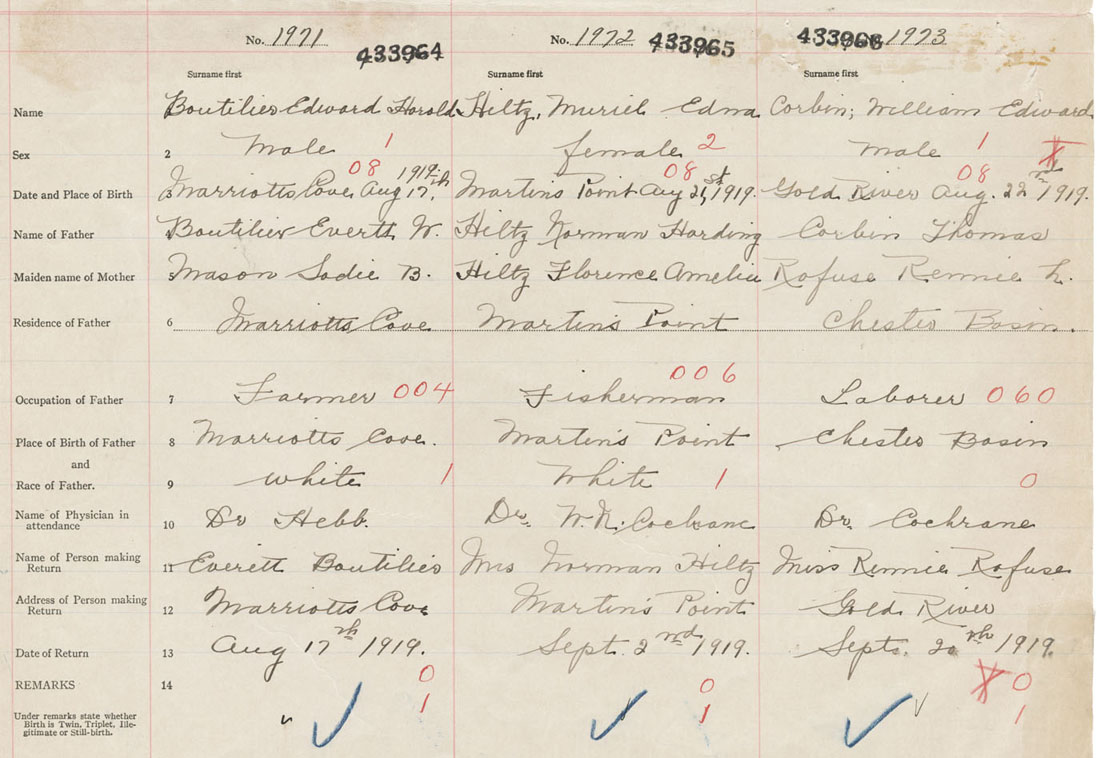 No. 1971 433964 No. 1972 433965 433966 1973
Surname first Surname first Surname first
Name Boutilier Edward Harold Hiltz, Muriel Edna Corbin, William Edward
Sex 2 Male 1 female 2 Male 1 X
08 1919 08 08
Date and Place of Birth Marriotts Cove Aug 17th, Martins Point Aug 21st, 1919. Gold River Aug. 22nd 1919.
Name of Father 4 Boutilier Everett W. Hiltz Norman Harding Corbin Thomas
Maiden name of Mother Mason Sadie B. Hiltz Florence Amelia Rafuse Rennie L.
Residence of Father 6 Marriotts Cove Martins Point Chester Basin.
Occupation of Father 7 Farmer 004 Fisherman 006 Laborer 060
Place of Birth of Father 8 Marriotts Cove. Martins Point Chester Basin
and
Race of Father. 9 white 1 White 1 0
Name of Physician in
attendance 10 Dr Hebb. Dr. W.N. Cochrane Dr. Cochrane
Name of Person making
Return 11 Everett Boutilier Mrs Norman Hiltz Miss Rennie Rafuse
Address of Person making
Return 12 Marriotts Cove Martins Point Gold River
Date of Return 13 Aug 17th 1919. Sept. 2nd 1919. Sept. 20th 1919.
REMARKS 14 0 0 X 0
Under remarks state whether 1 1 1
Birth is Twin, Triplet, Ille-
gitimate or Still-birth.